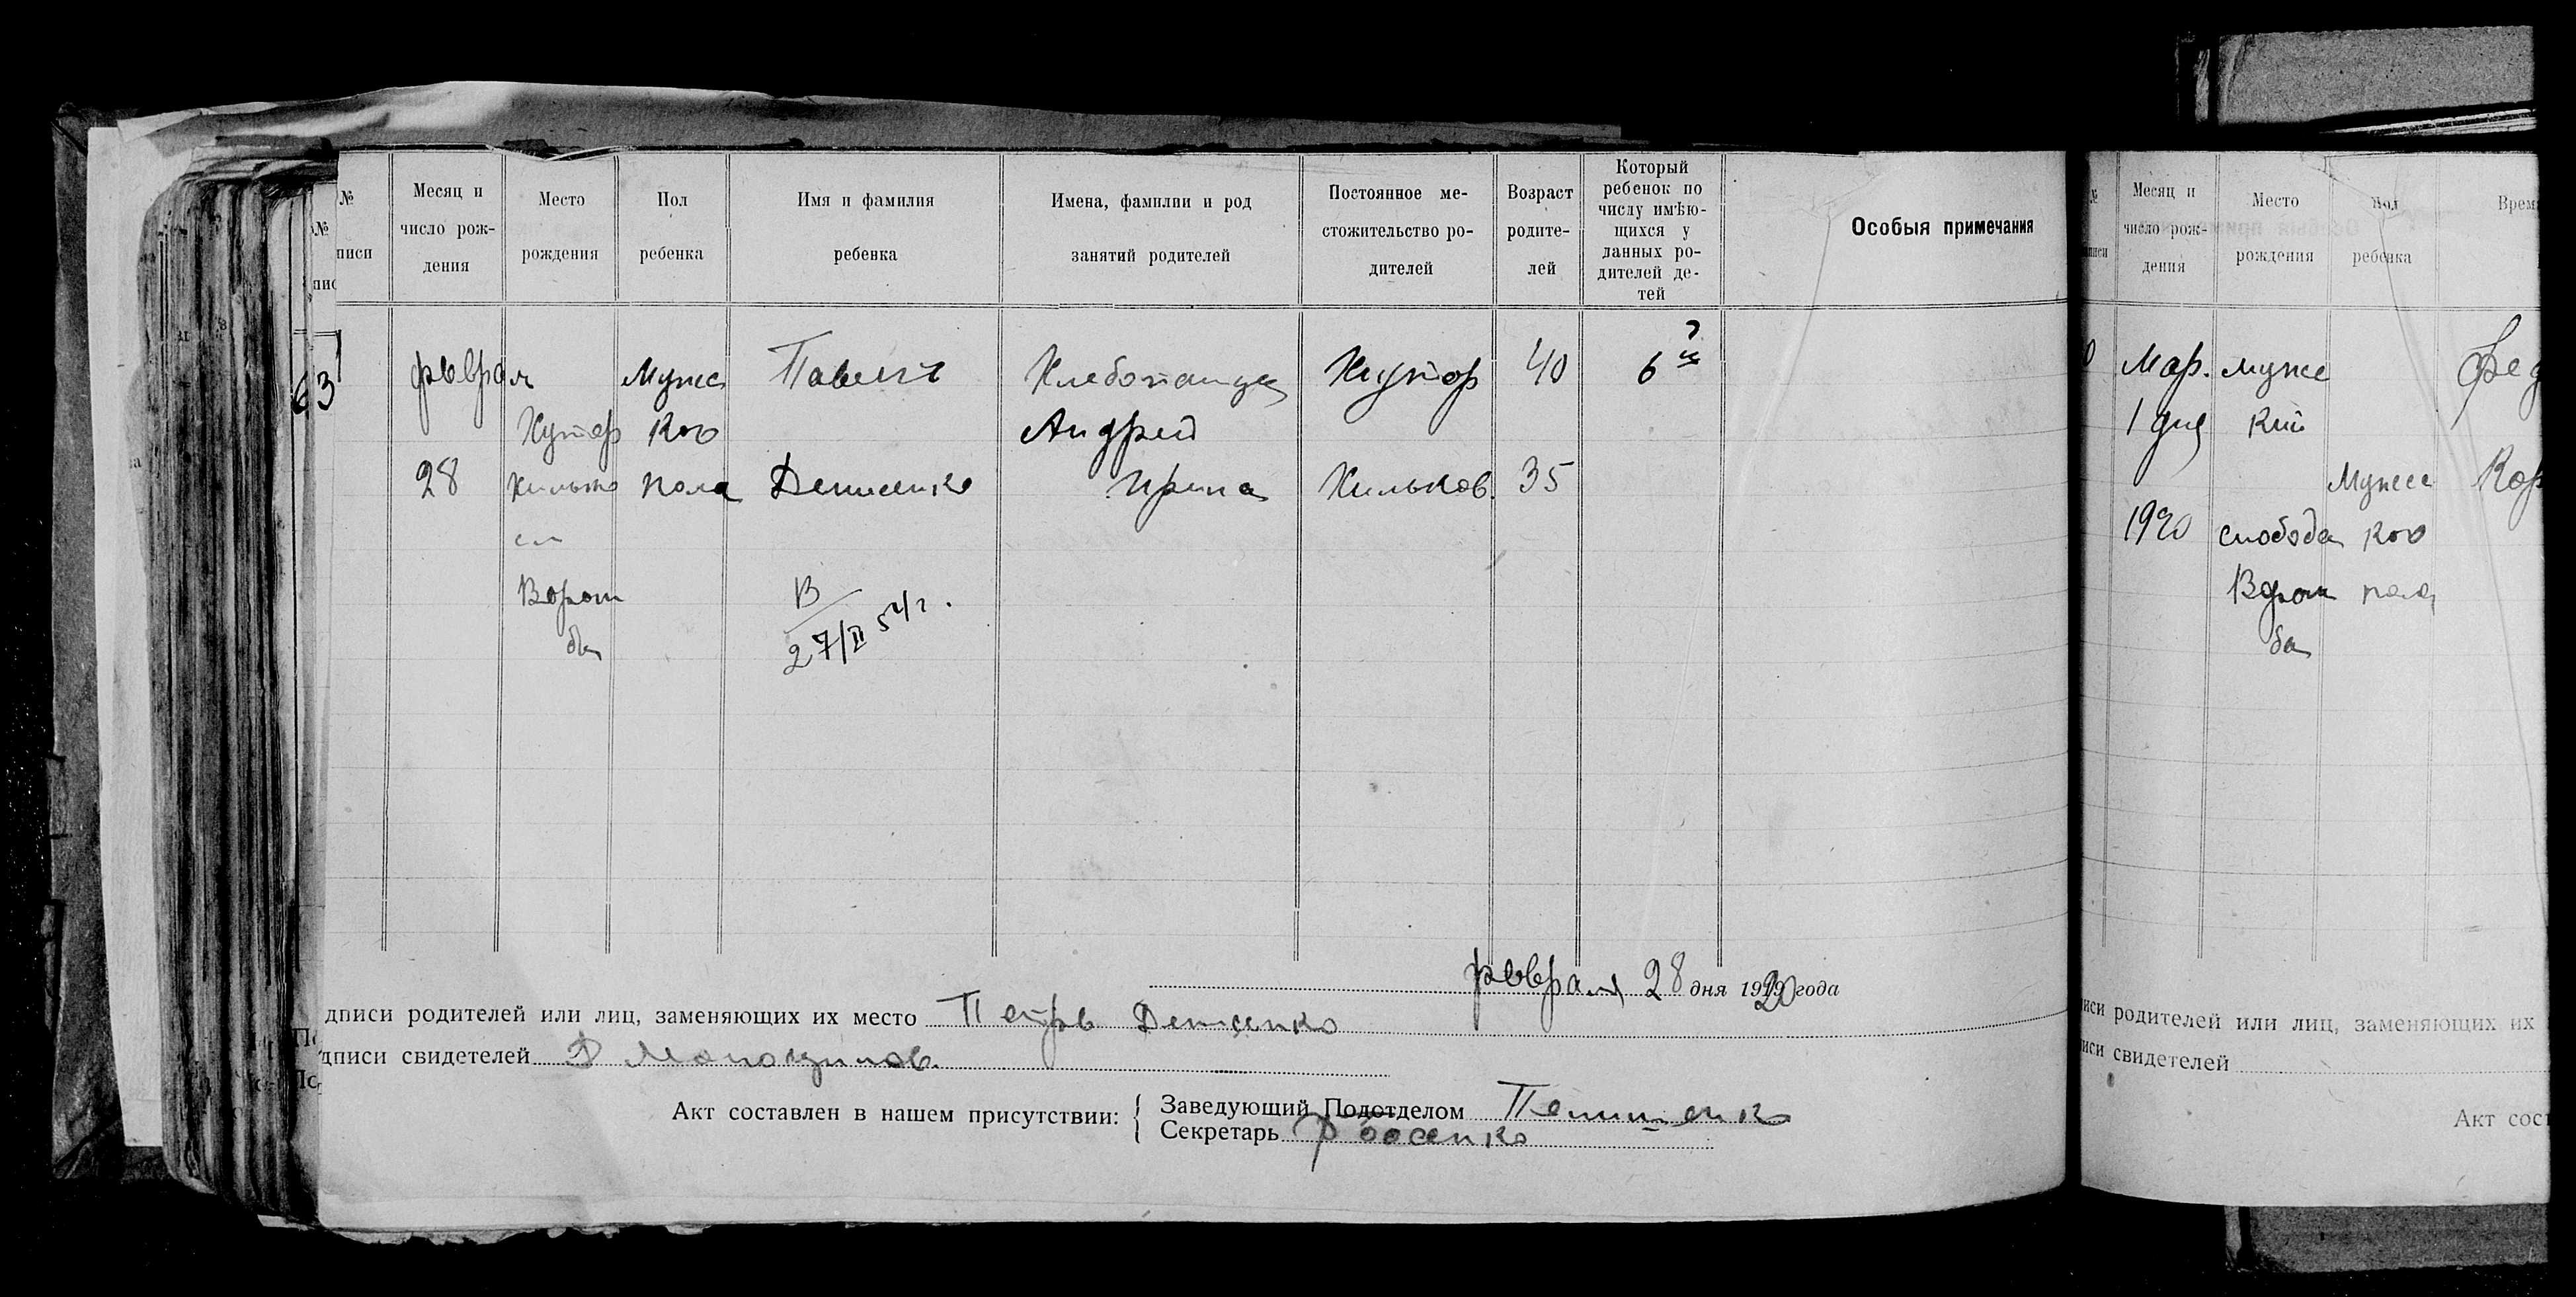 №
№
писи
Месяц и
число рож-
дения
Место
рождения
Пол
ребенка
Имя и фамилия
ребенка
Имена, фамилии и род
занятий родителей
Постоянное ме-
стожительство ро-
дителей
Возраст
родите-
лей
Который
ребенок по
числу имѣю-
щихся у
данных ро-
дителей де-
тей
Особыя примечания
63
февраля
28
Хутор
Хилько
Ворож
ба
Мужс
кого
пола
Павелъ
Денисенко
В
27/II 54г.
Хлебопашец
Андрей
Ирина
Хутор
Хильков.
40
35
6й
февраля 28 дня 1920 года
дписи родителей или лиц, заменяющих их место Петръ Денисенко
дписи свидетелей
Акт составлен в нашем присутствии:
Заведующий Подотделом
Секретарь
№
Месяц и
число рож-
дения
Место
рождения
Пол
ребенка
Мар.
1 дня
1920
муже
кий
слобода
Ворож
ба
Мужес
кого
пола
Фед
Кор
иси родителей или лиц, заменяющих их
иси свидетелей
Акт сос